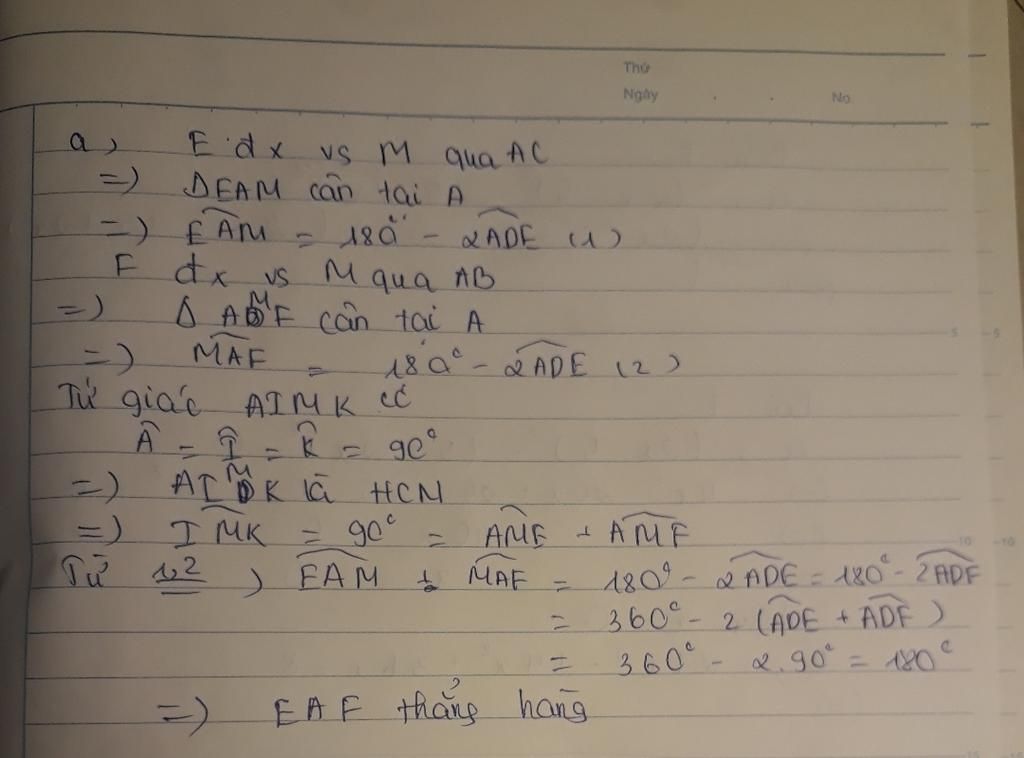 Thứ
Ngày . . No
a, E đx vs M qua AC
=) ΔEAM cân tại A
=) EAM = 180° - 2ADE (1)
F đx vs M qua AB
=) Δ AMF cân tại A
=) MAF = 180° - 2ADE (2)
Tứ giác AIMK có
A = I = K = 90°
=) AIMK là HCN
=) IMK = 90° = AME + AMF
Từ 1,2 ) EAM + MAF = 180° - 2ADE = 180° - 2ADF
= 360° - 2 (ADE + ADF)
= 360° - 2.90° = 180°
=) EAF thẳng hàng